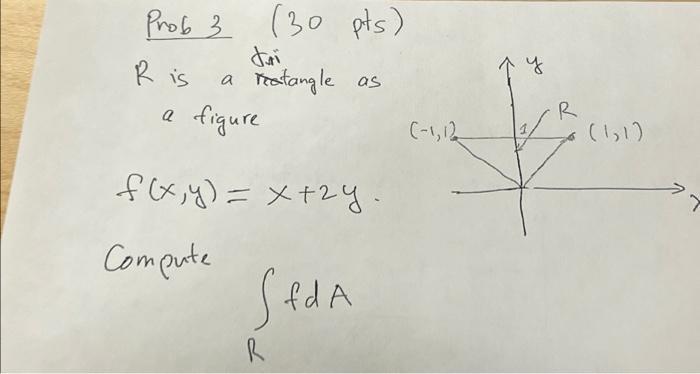 Prob 3 (30 pts)
tri
R is a rectangle as
a figure
f(x,y) = x+2y.
Compute
∫ f d A
R
y
R
(-1,1)
1
(1,1)
x